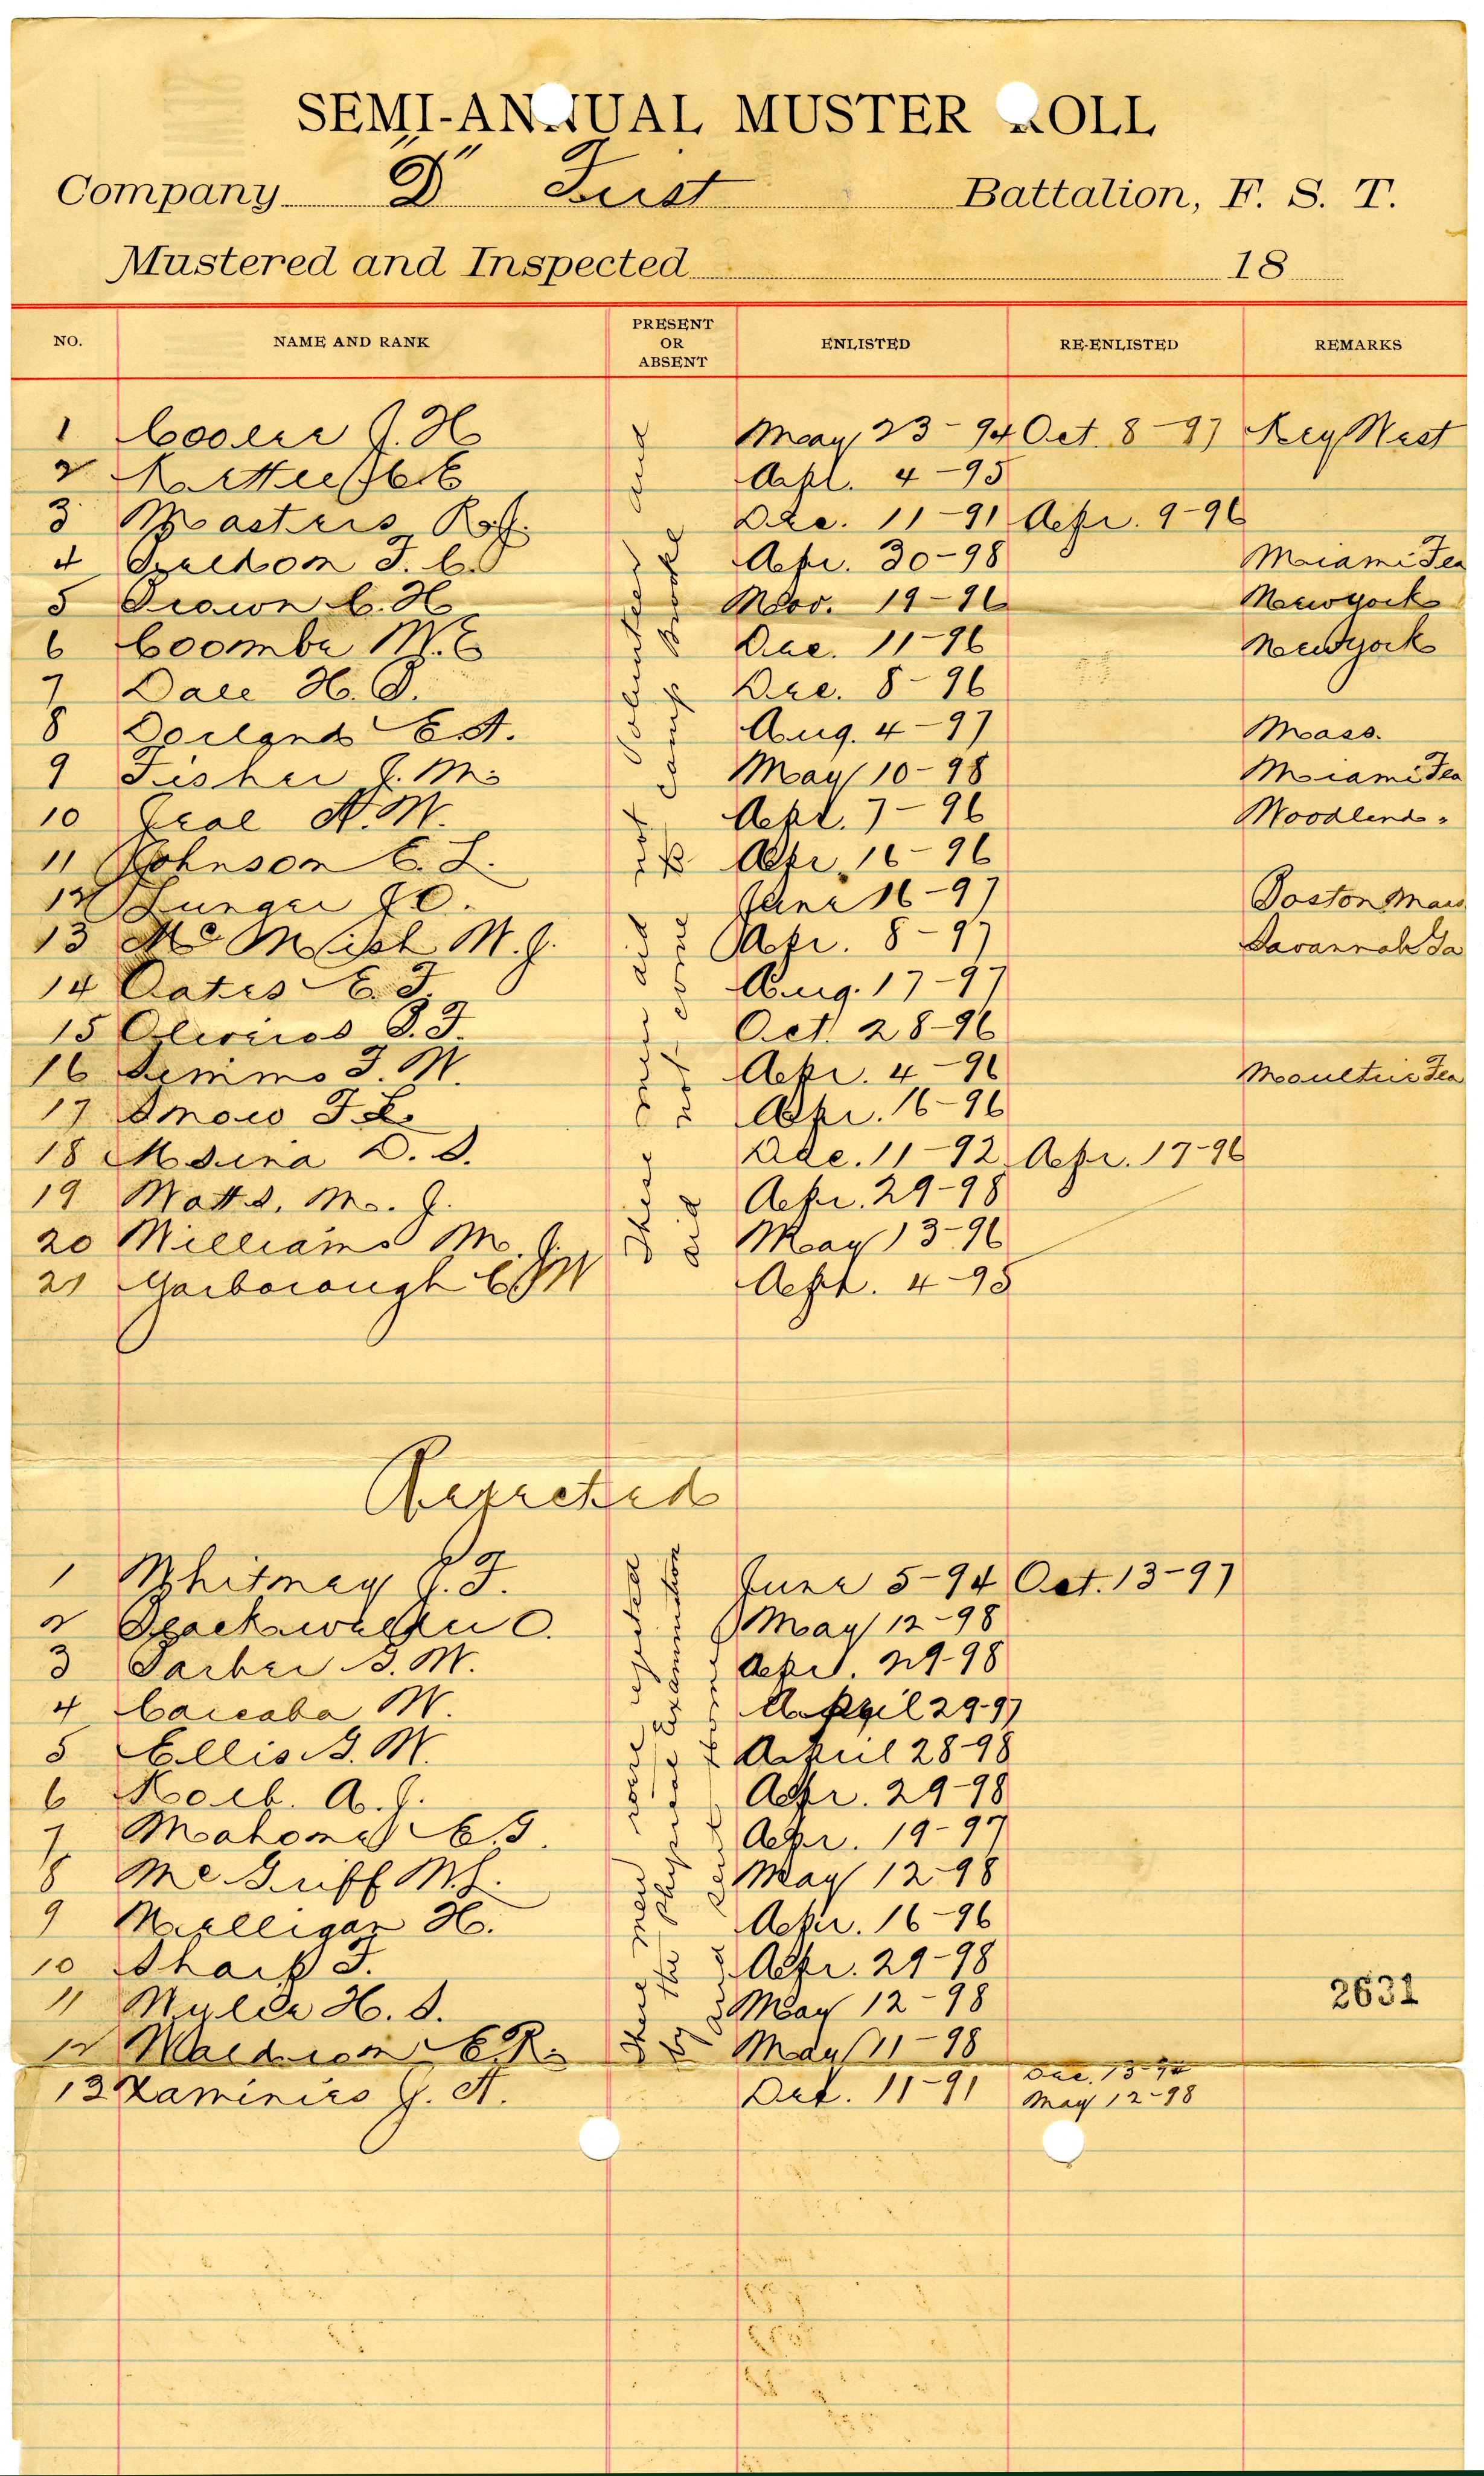 SEMI-ANNUAL MUSTER ROLL
Company "D" First Battalion, F. S. T.
Mustered and Inspected 18
NO. NAME AND RANK PRESENT OR ABSENT ENLISTED RE-ENLISTED REMARKS
1 Cooler J. H May 23-94 Oct. 8-97 Key West
2 Apl. 4-95
3 Masters R. J. Dec. 11-91 Apr. 9-96
4 F. C. Apr. 30-98 Miami Fla
5 Brown C. H Nov. 19-96 New york
6 Coombe W. E Dec. 11-96 New york
7 Dale H. B. Dec. 8-96
8 Dorland E. A. Aug. 4-97 Mass.
9 Fisher J. M. May 10-98 Miami Fla
10 A. W. Apl. 7-96 Woodland
11 Johnson C. L. Apr. 16-96
12 J O. June 16-97 Boston Mass
13 W. J. Apr. 8-97 Savannah Ga
14 Oates E. F. Aug. 17-97
15 Oliveros B. F. Oct. 28-96
16 Simms F. W. Apr. 4-96 Moultrie Fla
17 Snow F. L. Apr. 16-96
18 Usina D. S. Dec. 11-92 Apr. 17-96
19 Watts. M. J. Apr. 29-98
20 Williams M. J. May 13-96
21 Yarborough C. W Apl. 4-95
These men did not Volunteer and
did not come to Camp Brooke
Rejected
1 Whitney J. F. June 5-94 Oct. 13-97
2 Blackwelder O. May 12-98
3 Barber G. W. Apr. 29-98
4 Carcaba W. April 29-97
5 Ellis G. W. April 28-98
6 Kolb. A. J. Apr. 29-98
7 Mahone E. G. Apr. 19-97
8 McGriff W. L. May 12-98
9 Mulligan H. Apr. 16-96
10 Sharp F. Apr. 29-98
11 Wylie H. S. May 12-98
12 Waldron E. R. May 11-98
13 Ximinies J. A. Dec. 11-91 Dec. 13-94
May 12-98
These men were rejected
by the Physical Examination
and sent home
2631